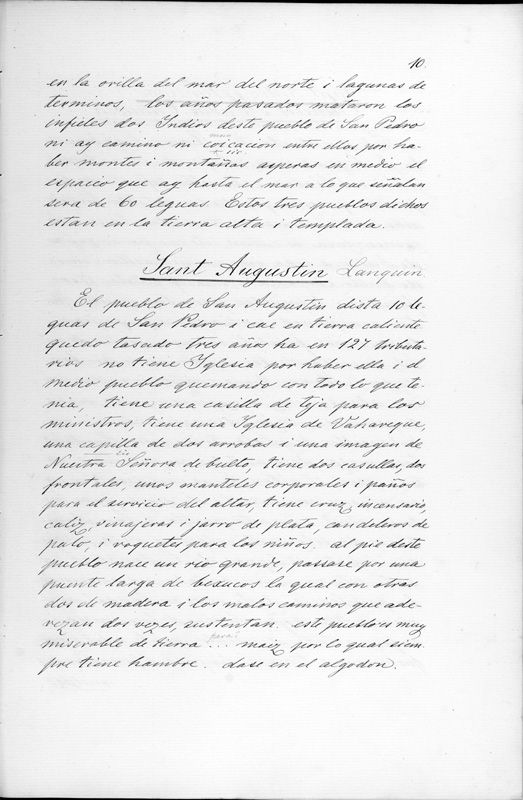 10
en la orilla del mar del norte i lagunas de
terminos, los años pasados mataron los
infieles dos Indios deste pueblo de San Pedro
ni ay camino ni coicacion entre ellos por ha-
ber montes i montañas asperas en medio el
espacio que ay hasta el mar a lo que señalan
sera de 60 leguas Estos tres pueblos dichos
estan en la tierra alta i templada.
Sant Augustin Lanquin
El pueblo de San Augustin dista 10 le-
guas de San Pedro i cae en tierra caliente
quedo tasado tres años ha en 127 tributa-
rios no tiene Iglesia por haber ella i el
medio pueblo quemando con todo lo que te-
nia, tiene una casilla de teja para los
ministros, tiene una Iglesia de Vahareque,
una capilla de dos arrobas i una imagen de
Nuestra Señora de bulto, tiene dos casullas, dos
frontales, unos manteles corporales i paños
para el servicio del altar, tiene cruz, incensario,
caliz, vinajeras i jarro de plata, candeleros de
palo, i roquetes para los niños. al pie deste
pueblo nace un rio grande, passase por una
puente larga de bexucos la qual con otras
dos de madera i los malos caminos que ade-
rezan dos vezes, sustentan. este pueblo es muy
miserable de tierra ... maiz por lo qual siem-
pre tiene hambre. dase en el algodon.